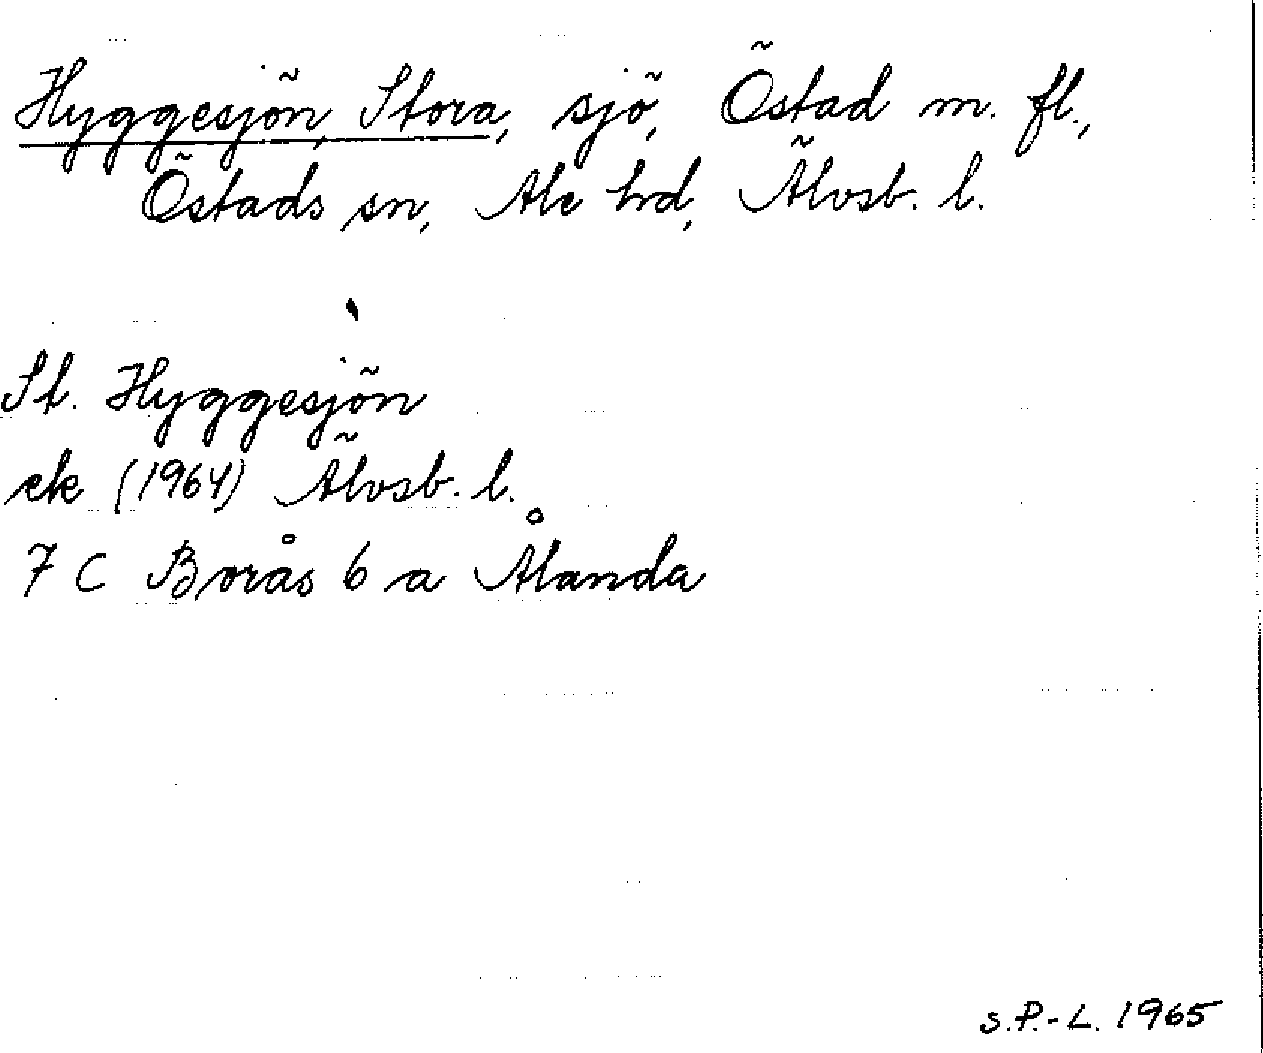 Hyggesjön, Stora, sjö, Östad m. fl.,
Östads sn, Ale hd, Älvsb. l.
St. Hyggesjön
ek (1964) Älvsb. l.
7 C Borås 6 a Ålanda
S.P.-L. 1965